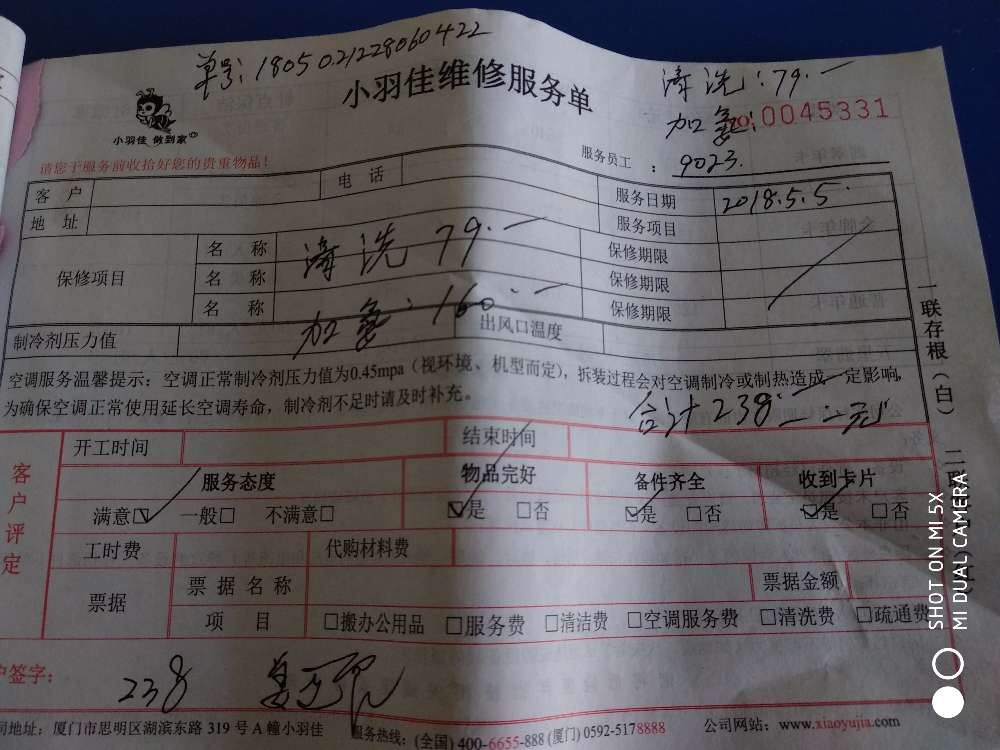 单号: 180502122806 0422
小羽佳维修服务单
清洗:79.一
加氟: 0045331
小羽佳 做到家
请您于服务前收拾好您的贵重物品!
服务员工:9023.
客户 电话 服务日期 2018.5.5.
地址 服务项目
保修项目 名称 清洗 79.一 保修期限
名称 保修期限
名称 加氟:160.一 保修期限
制冷剂压力值 出风口温度
空调服务温馨提示:空调正常制冷剂压力值为0.45mpa(视环境、机型而定),拆装过程会对空调制冷或制热造成一定影响,
为确保空调正常使用延长空调寿命,制冷剂不足时请及时补充。
合计238.一元
一联存根(白)二联
客户评定
开工时间 结束时间
服务态度 物品完好 备件齐全 收到卡片
满意☑ 一般□ 不满意□ ☑是 □否 ☑是 □否 ☑是 □否
工时费 代购材料费
票据 票据名称 票据金额
项目 □搬办公用品 □服务费 □清洁费 □空调服务费 □清洗费 □疏通费
户签字:
238
司地址:厦门市思明区湖滨东路 319 号 A 幢小羽佳 服务热线:(全国) 400-6655-888 (厦门) 0592-5178888 公司网站:www.xiaoyujia.com
SHOT ON MI 5X
MI DUAL CAMERA